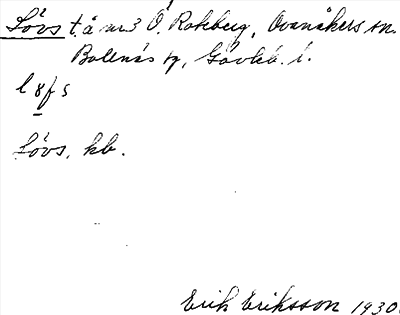 Lövs t. å nr 3 Ö. Roteberg, Ovanåkers sn.
Bollnäs tg, Gävleb. l.
l 8 f 5
Lövs, kb.
Erik Eriksson 1930.